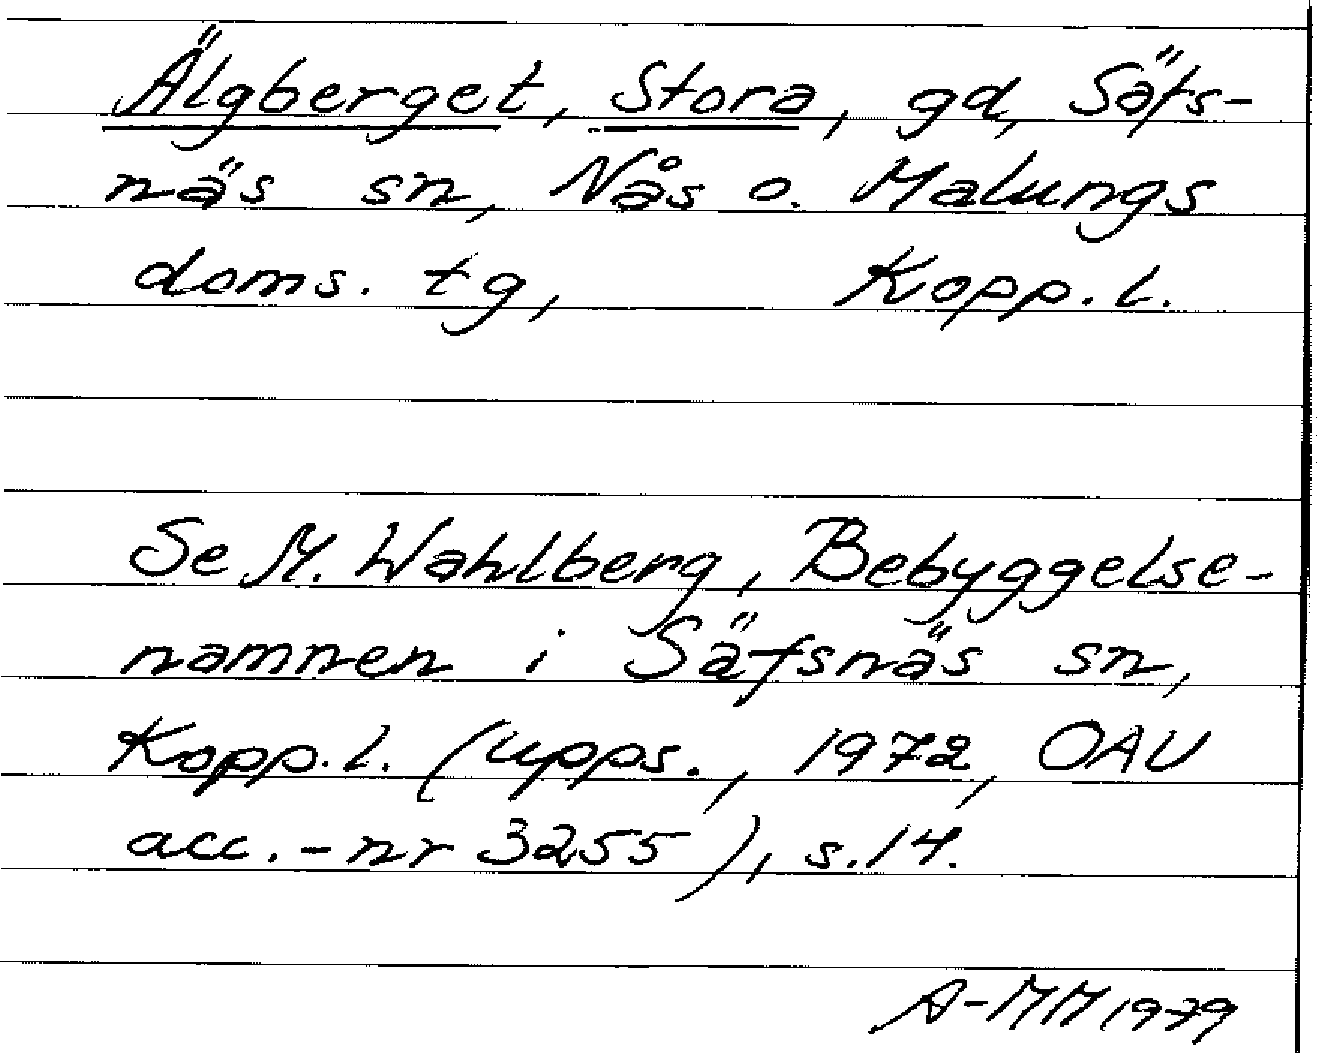 Älgberget, Stora, gd, Säfs-
näs sn, Nås o. Malungs
doms. tg, Kopp. l.
Se M. Wahlberg, Bebyggelse-
namnen i Säfsnäs sn,
Kopp. l. (upps., 1972, OAU
acc.-nr 3255), s. 14.
A-MM 1979